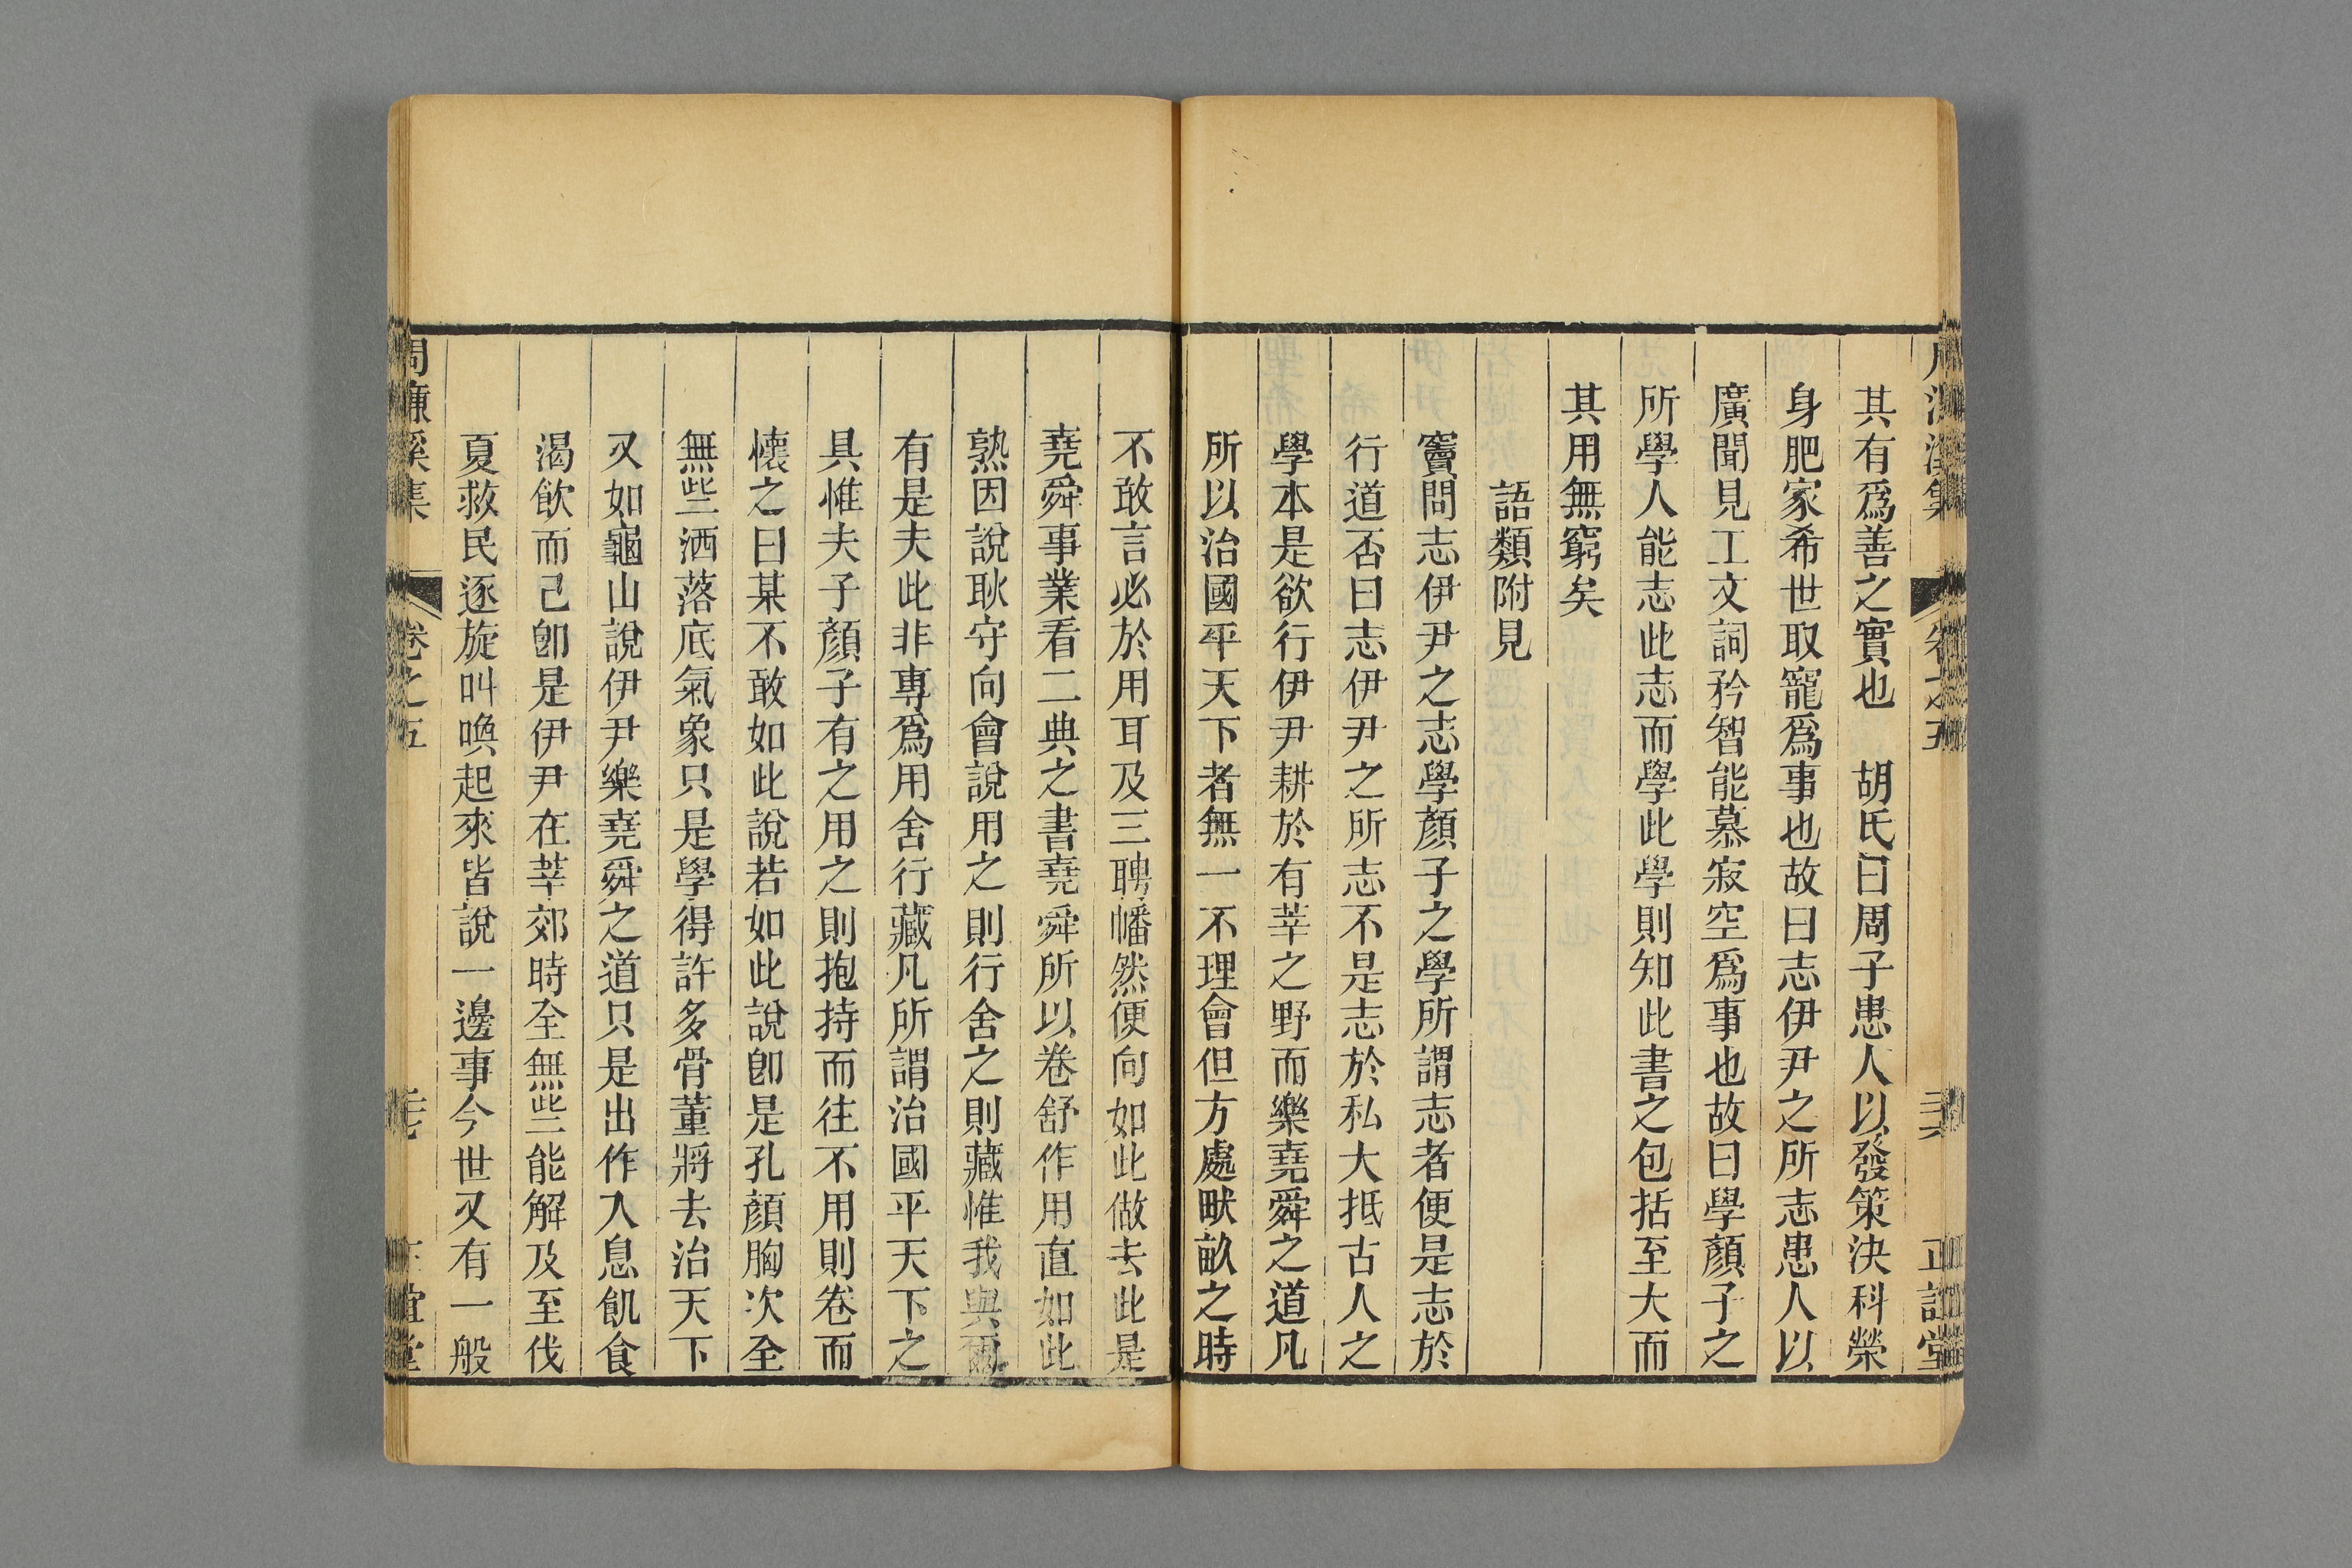 其有爲善之實也　胡氏曰周子患人以發策決科榮
身肥家希世取寵爲事也故曰志伊尹之所志患人以
廣聞見工文詞矜智能慕寂空爲事也故曰學顏子之
所學人能志此志而學此學則知此書之包括至大而
其用無窮矣
語類附見
竇問志伊尹之志學顏子之學所謂志者便是志於
行道否曰志伊尹之所志不是志於私大抵古人之
學本是欲行伊尹耕於有莘之野而樂堯舜之道凡
所以治國平天下者無一不理會但方處畎畝之時
不敢言必於用耳及三聘幡然便向如此做去此是
堯舜事業看二典之書堯舜所以卷舒作用直如此
熟因說耿守向會說用之則行舍之則藏惟我與爾
有是夫此非專爲用舍行藏凡所謂治國平天下之
具惟夫子顏子有之用之則抱持而往不用則卷而
懷之曰某不敢如此說若如此說卽是孔顏胸次全
無些洒落底氣象只是學得許多骨董將去治天下
又如龜山說伊尹樂堯舜之道只是出作入息飢食
渴飮而已卽是伊尹在莘郊時全無些能解及至伐
夏救民逐旋叫喚起來皆說一邊事今世又有一般
周濂溪集　卷之五